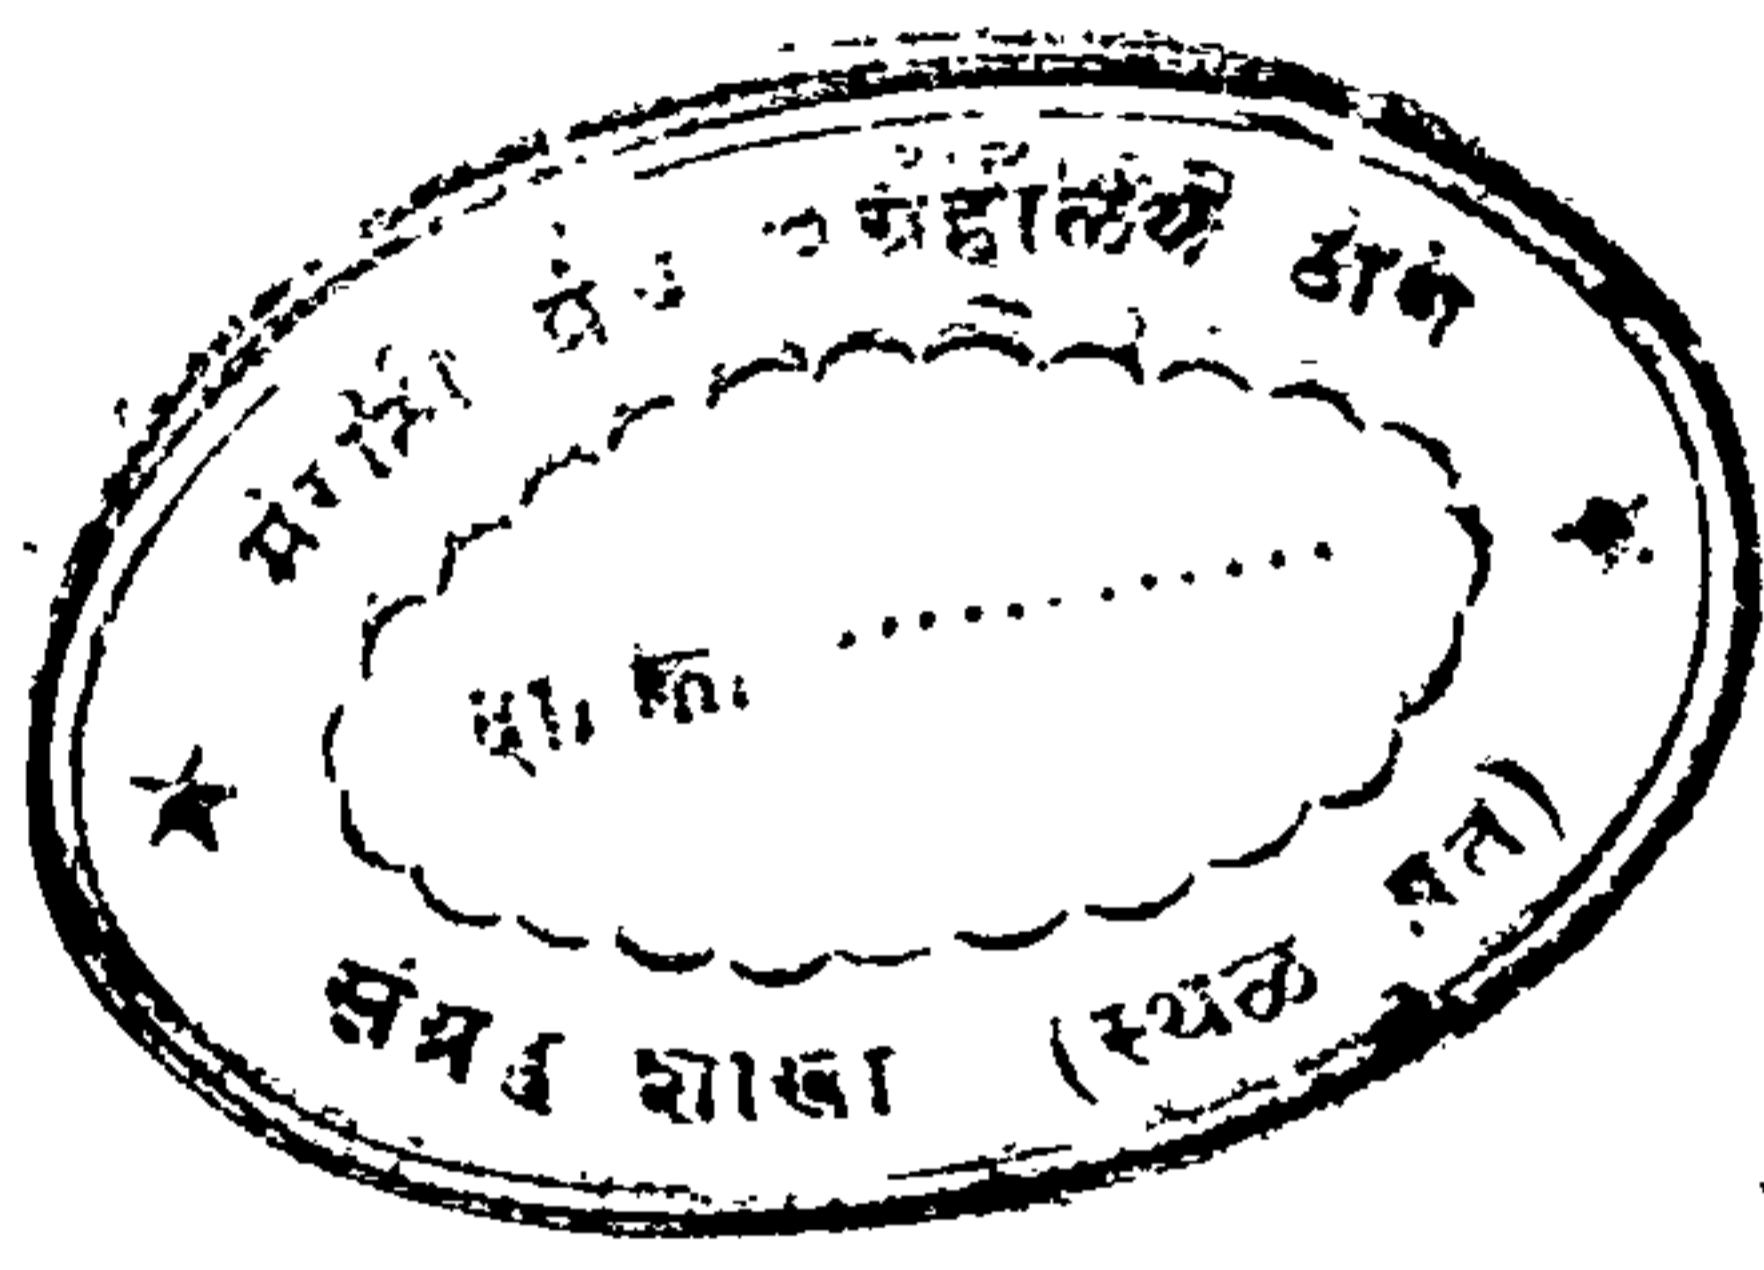 मराठी ग्रंथ संग्रहालय ठाणे
दा. क्र. ..............
संग्रह शाखा (स्थळ प्रत)